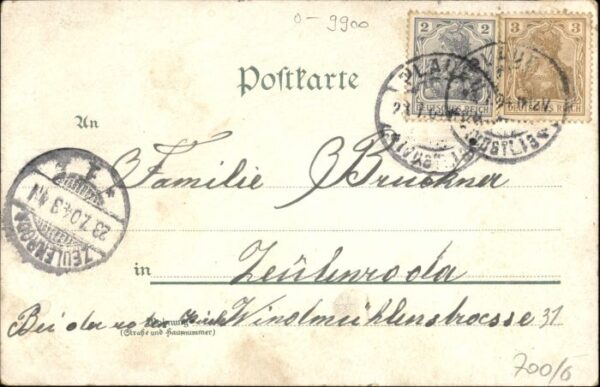 0-9900
2 2 3 3
DEUTSCHES REICH DEUTSCHES REICH
PLAUEN
Postkarte
An
Familie Bruckner
ZEULENRODA
23.7.04
in Zeulenroda
Bei der roten Windmühlenstrasse 31
(Straße und Hausnummer)
700/6